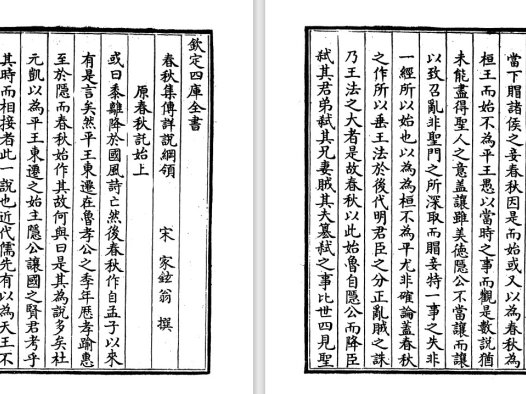 欽定四庫全書
春秋集傳詳說綱領
宋 家鉉翁 撰
原春秋託始上
或曰黍離降於國風詩亡然後春秋作自孟子以來
有是言矣然平王東遷在魯孝公之季年歷孝踰惠
至於隱而春秋始作其故何與曰是其為說多矣杜
元凱以為平王東遷之始主隱公讓國之賢君考乎
其時而相接者此一說也近代儒先有以為天王不
當下賵諸侯之妾春秋因是而始或又以為春秋為
桓王而始不為平王愚以當時之事而觀是數說猶
未能盡得聖人之意蓋讓雖美徳隱公不當讓而讓
以致召亂非聖門之所深取而賵妾特一事之失非
一經所以始也以為為桓不為平尤非確論蓋春秋
之作所以垂王法於後代明君臣之分正亂賊之誅
乃王法之大者是故春秋以此始魯自隱公而降臣
弑其君弟弑其兄妻賊其夫簒弑之事比世四見聖